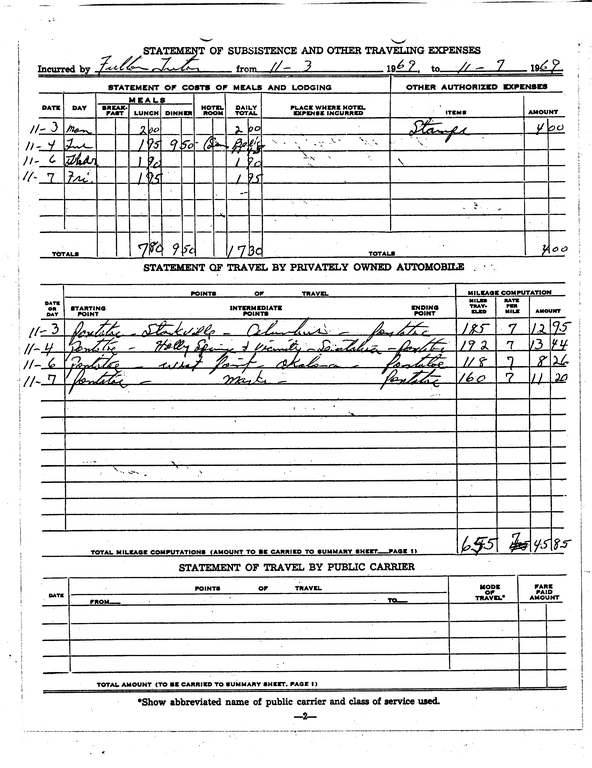 STATEMENT OF SUBSISTENCE AND OTHER TRAVELING EXPENSES
Incurred by from 11-3 1969, to 11-7 1969
STATEMENT OF COSTS OF MEALS AND LODGING OTHER AUTHORIZED EXPENSES
MEALS
DATE DAY BREAK-FAST LUNCH DINNER HOTEL ROOM DAILY TOTAL PLACE WHERE HOTEL EXPENSE INCURRED ITEMS AMOUNT
11-3 Mon 2 00 2 00 Stamps 4 00
11-4 Tue 1 95 9 50
11-6 Thur 1 90 1 90
11-7 Fri. 1 95 1 95
TOTALS 7 80 9 50 17 30 TOTALS 4 00
STATEMENT OF TRAVEL BY PRIVATELY OWNED AUTOMOBILE
POINTS OF TRAVEL MILEAGE COMPUTATION
DATE OR DAY STARTING POINT INTERMEDIATE POINTS ENDING POINT MILES TRAV-ELED RATE PER MILE AMOUNT
11-3 Pontotoc - Starkville - Columbus - Pontotoc 185 7 12 95
11-4 Pontotoc - Holly Springs & Vicinity - - Pontotoc 192 7 13 44
11-6 Pontotoc - West Point - Okolona - Pontotoc 118 7 8 26
11-7 Pontotoc - - Pontotoc 160 7 11 20
TOTAL MILEAGE COMPUTATIONS (AMOUNT TO BE CARRIED TO SUMMARY SHEET—PAGE 1) 655 45 85
STATEMENT OF TRAVEL BY PUBLIC CARRIER
DATE POINTS OF TRAVEL MODE OF TRAVEL* FARE PAID AMOUNT
FROM TO
TOTAL AMOUNT (TO BE CARRIED TO SUMMARY SHEET, PAGE 1)
*Show abbreviated name of public carrier and class of service used.
—2—